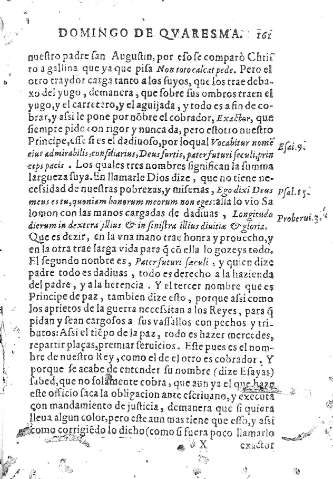 DOMINGO DE QVARESMA. 161
nuestro padre san Augustin, por eso se comparò Chris
to a gallina que ya que pisa Non toto calcat pede. Pero el
otro traydor carga tanto a los suyos, que los trae deba-
xo del yugo, demanera, que sobre sus ombros traen el
yugo, y el carretero, y el aguijada, y todo es a fin de co-
brar, y assi le pone por nõbre el cobrador, Exactor, que
siempre pide con rigor y nunca da, pero estotro nuestro
Principe, esse si es el dadiuoso, por loqual Vocabitur nomẽ
eius admirabilis, consiliarius, Deus fortis, pater futuri seculi, prin
ceps pacis. Los quales tres nombres significan la summa
largueza suya. En llamarle Dios dize, que no tiene ne-
cessidad de nuestras pobrezas, y miserias, Ego dixi Deus
meus es tu, quoniam bonorum meorum non eges: alla lo vio Sa
lomon con las manos cargadas de dadiuas, Longitudo
dierum in dextera illius & in sinistra illius diuitiæ & gloria.
Que es dezir, en la vna mano trae honra y prouecho, y
en la otra trae larga vida para q̃ cõ ella lo gozeys todo.
El segundo nombre es, Pater futuri sæculi, y quien dize
padre todo es dadiuas, todo es derecho a la hazienda
del padre, y a la herencia. Y el tercer nombre que es
Principe de paz, tambien dize esto, porque assi como
los aprietos de la guerra necessitan a los Reyes, para q̃
pidan y sean cargosos a sus vassallos con pechos y tri-
butos: Assi el tiẽpo de la paz, todo es hazer mercedes,
repartir plaças, premiar seruicios. Este pues es el nom-
bre de nuestro Rey, como el de el otro es cobrador. Y
porque se acabe de entender su nombre (dize Esayas)
sabed, que no solamente cobra, que aun ya el que haze
este officio saca la obligacion ante escriuano, y executa
con mandamiento de justicia, demanera que si quiera
lleua algun color, pero este aun mas tiene que esso, y assi
como corrigiẽdo lo dicho (como si fuera poco llamarlo
X exactor
Esai. 9.
Psal. 15.
Prouerb. 3.